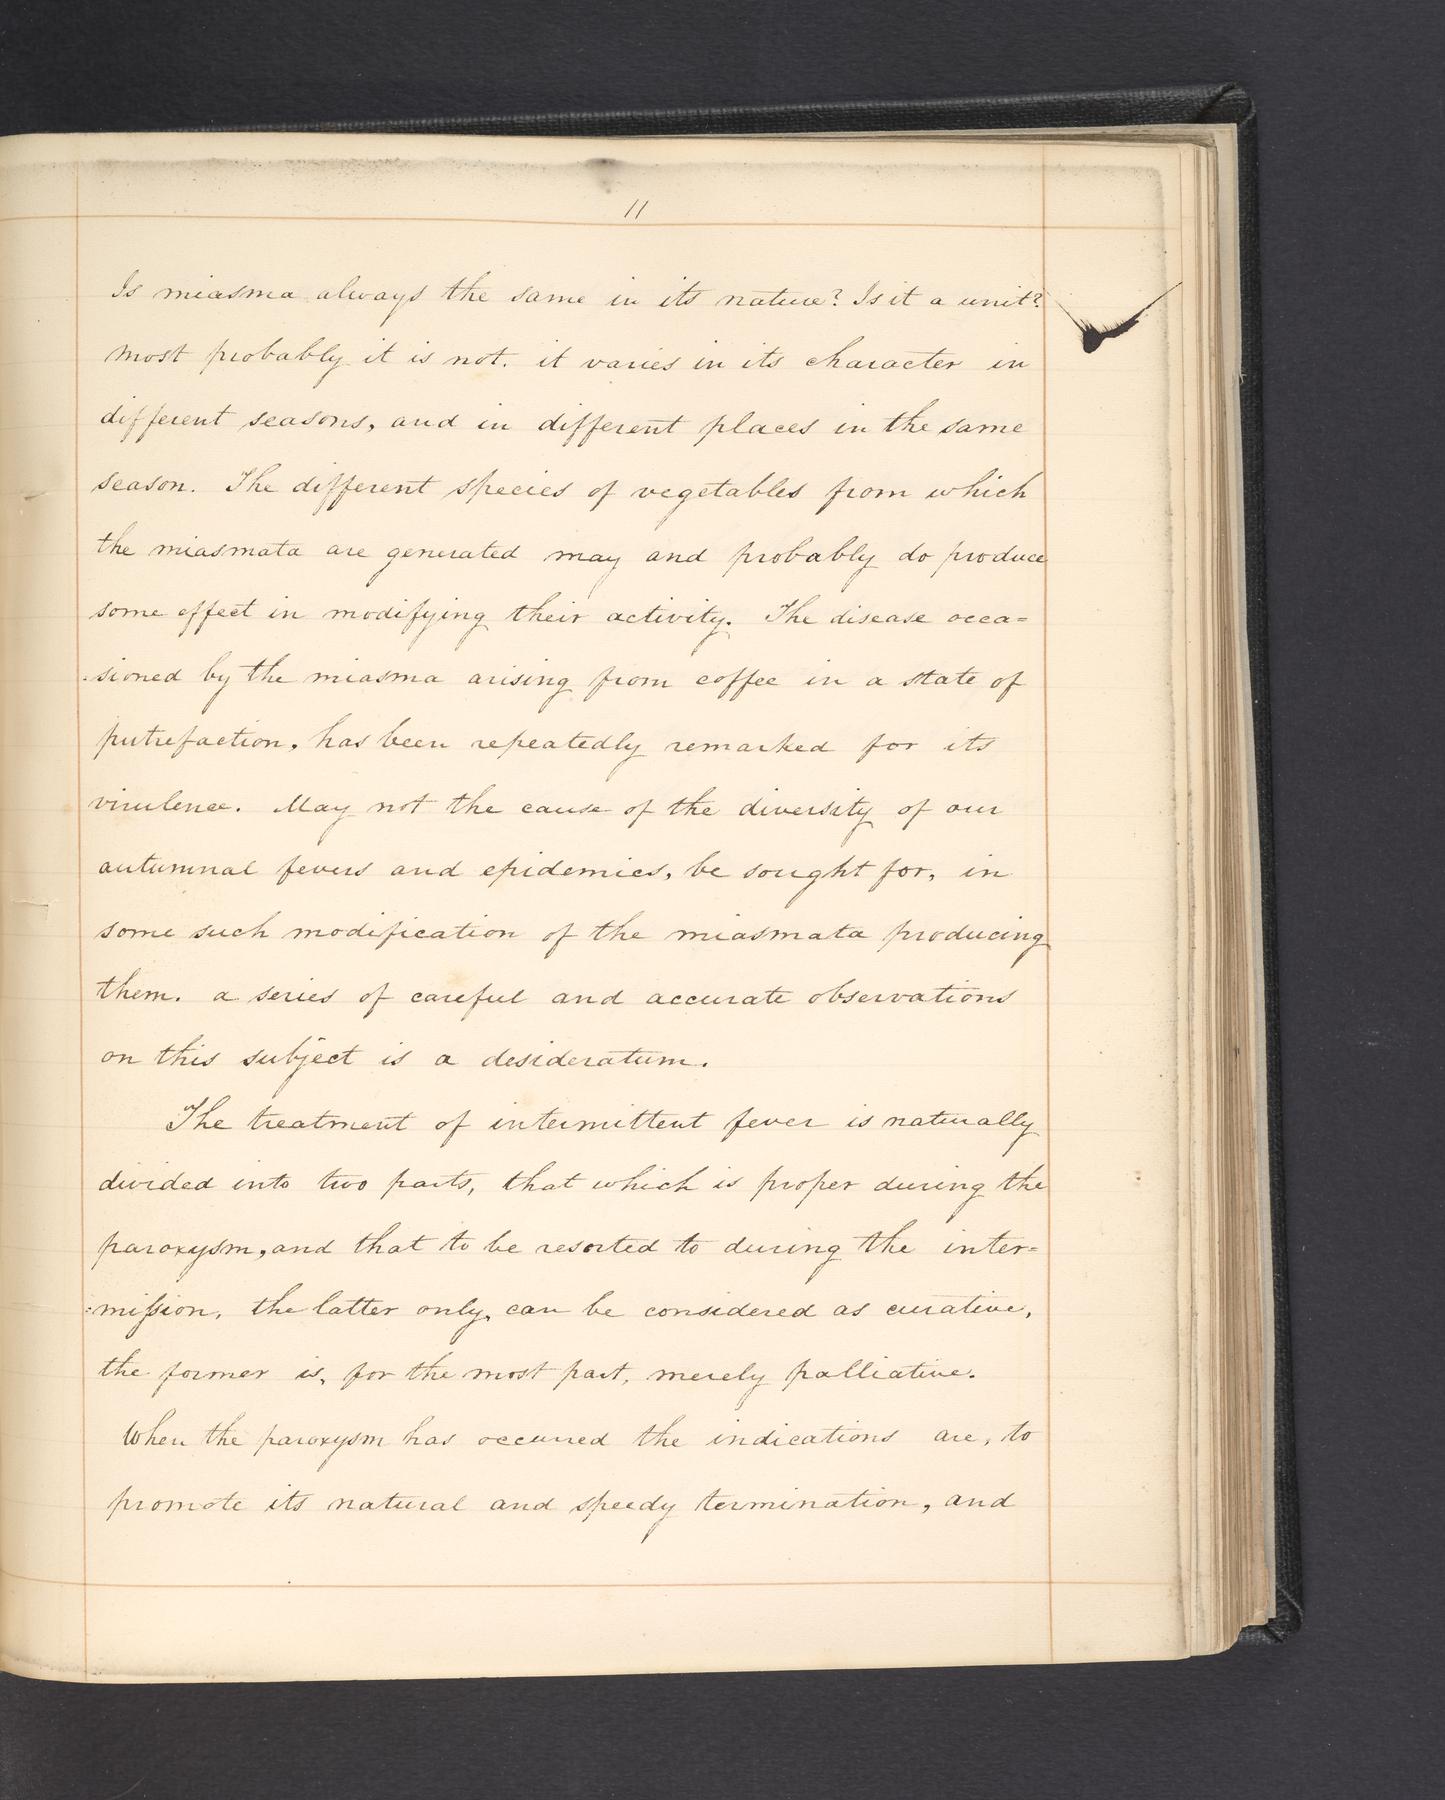 11
Is miasma always the same in its nature? Is it a unit?
most probably it is not. it varies in its character in
different seasons, and in different places in the same
season. The different species of vegetables from which
the miasmata are generated may and probably do produce
some effect in modifying their activity. The disease occa=
-sioned by the miasma arising from coffee in a state of
putrefaction, has been repeatedly remarked for its
virulence. May not the cause of the diversity of our
autumnal fevers and epidemics, be sought for, in
some such modification of the miasmata producing
them. a series of careful and accurate observations
on this subject is a desideratum.
The treatment of intermittent fever is naturally
divided into two parts, that which is proper during the
paroxysm, and that to be resorted to during the inter=
=miſsion, the latter only, can be considered as curative,
the former is, for the most part, merely palliative.
When the paroxysm has occurred the indications are, to
promote its natural and speedy termination, and